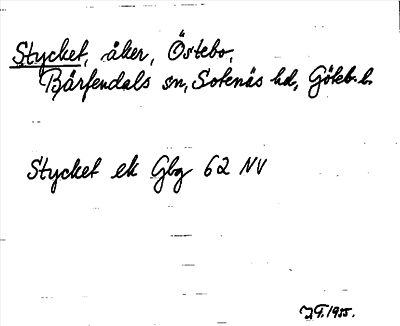 Stycket, åker, Östebo,
Bärfendals sn, Sotenäs hd, Göteb. l.
Stycket ek Gbg 62 NV
J.T. 1955.